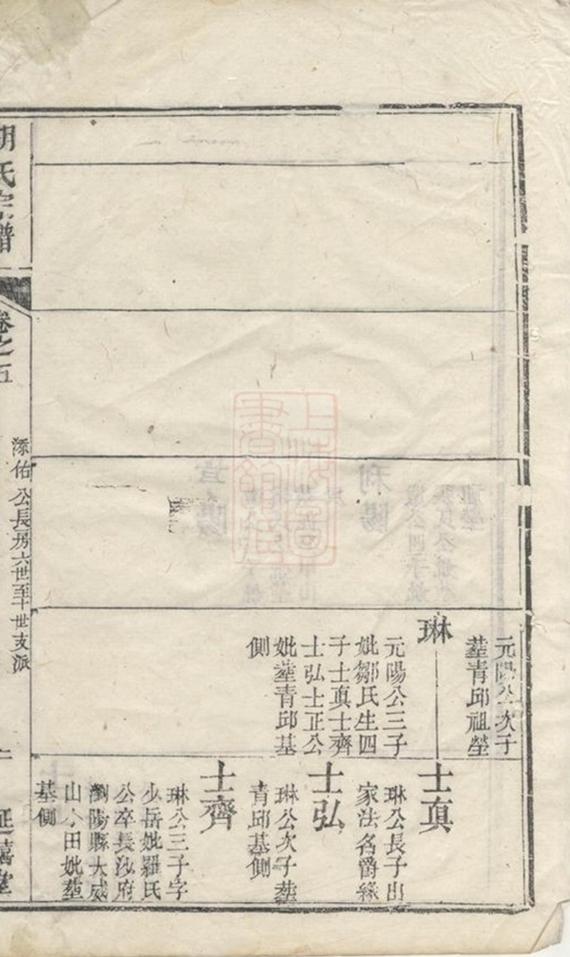 元陽公次子
塟青邱祖塋
琳
元陽公三子
妣鄒氏生四
子士真士齊
士弘士正公
妣塟青邱基
側
士真
琳公長子出
家法名爵緣
士弘
琳公次子塟
青邱基側
士齊
琳公三子字
少岳妣羅氏
公卒長沙府
瀏陽縣大成
山下田妣塟
基側
胡氏宗譜
卷之五
添佑公長房六世至十世支派
延禧堂
上海圖書館藏